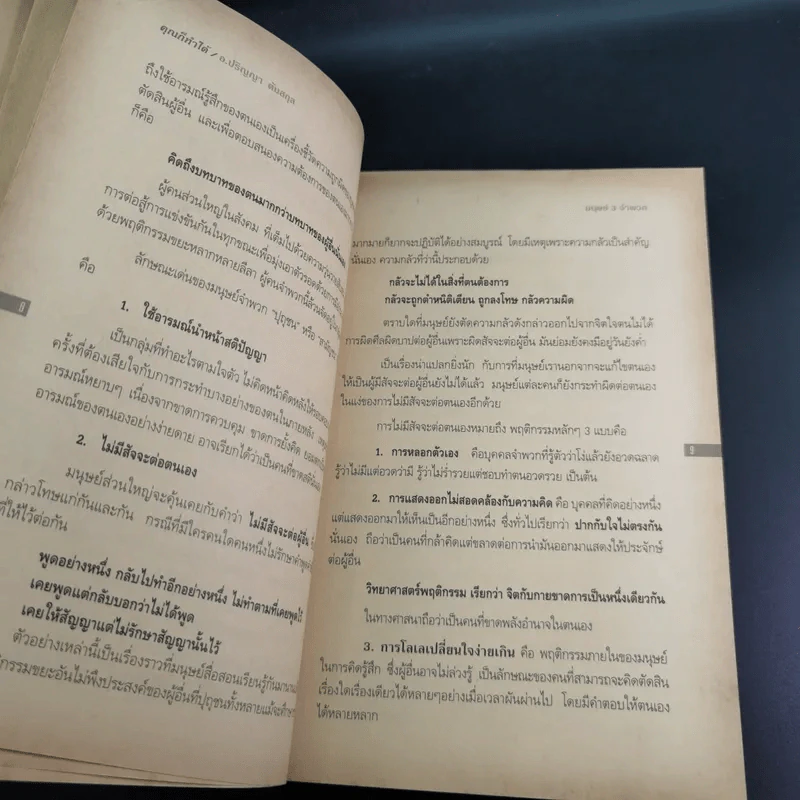 คุณก็ทำได้ / อ.ปริญญา ตันสกุล
ถึงใช้อารมณ์รู้สึกของตนเองเป็นเครื่องชี้วัดความถูกผิด
ตัดสินผู้อื่น และเพื่อตอบสนองความต้องการของตน
ก็คือ
คิดถึงบทบาทของตนมากกว่าบทบาทของผู้อื่น
ผู้คนส่วนใหญ่ในสังคม ที่เต็มไปด้วยความวุ่นวาย
การต่อสู้การแข่งขันกันในทุกขณะเพื่อมุ่งเอาตัวรอดด้วยการ
ด้วยพฤติกรรมขยะหลากหลายลีลา ผู้คนจำพวกนี้ล้วนจัดอยู่
ลักษณะเด่นของมนุษย์จำพวก "ปุถุชน" หรือ
คือ
1. ใช้อารมณ์นำหน้าสติปัญญา
เป็นกลุ่มที่ทำอะไรตามใจตัว ไม่คิดหน้าคิดหลังให้รอบคอบ
ครั้งที่ต้องเสียใจกับการกระทำบางอย่างของตนในภายหลัง
อารมณ์หยาบๆ เนื่องจากขาดการควบคุม ขาดการยั้งคิด
อารมณ์ของตนเองอย่างง่ายดาย อาจเรียกได้ว่าเป็นคนที่ขาดสติ
2. ไม่มีสัจจะต่อตนเอง
มนุษย์ส่วนใหญ่จะคุ้นเคยกับคำว่า ไม่มีสัจจะต่อผู้อื่น
กล่าวโทษแก่กันและกัน กรณีที่มีใครคนใดคนหนึ่งไม่รักษาคำพูด
ที่ให้ไว้ต่อกัน
พูดอย่างหนึ่ง กลับไปทำอีกอย่างหนึ่ง ไม่ทำตามที่เคยพูดไว้
เคยพูดแต่กลับบอกว่าไม่ได้พูด
เคยให้สัญญาแต่ไม่รักษาสัญญานั้นไว้
ตัวอย่างเหล่านี้เป็นเรื่องราวที่มนุษย์สื่อสอนเรียนรู้กันมานาน
กรรมขยะอันไม่พึงประสงค์ของผู้อื่นที่ปุถุชนทั้งหลายแม้จะศึกษา
8
มนุษย์ 3 จำพวก
มากมายก็ยากจะปฏิบัติได้อย่างสมบูรณ์ โดยมีเหตุเพราะความกลัวเป็นสำคัญ
นั่นเอง ความกลัวที่ว่านี้ประกอบด้วย
กลัวจะไม่ได้ในสิ่งที่ตนต้องการ
กลัวจะถูกตำหนิติเตียน ถูกลงโทษ กลัวความผิด
ตราบใดที่มนุษย์ยังตัดความกลัวดังกล่าวออกไปจากจิตใจตนไม่ได้
การผิดศีลผิดบาปต่อผู้อื่นเพราะผิดสัจจะต่อผู้อื่น มันย่อมยังคงมีอยู่วันยังค่ำ
เป็นเรื่องน่าแปลกยิ่งนัก กับการที่มนุษย์เรานอกจากจะแก้ไขตนเอง
ให้เป็นผู้มีสัจจะต่อผู้อื่นยังไม่ได้แล้ว มนุษย์แต่ละคนก็ยังกระทำผิดต่อตนเอง
ในแง่ของการไม่มีสัจจะต่อตนเองอีกด้วย
การไม่มีสัจจะต่อตนเองหมายถึง พฤติกรรมหลักๆ 3 แบบคือ
1. การหลอกตัวเอง คือบุคคลจำพวกที่รู้ตัวว่าโง่แล้วยังอวดฉลาด
รู้ว่าไม่มีแต่อวดว่ามี รู้ว่าไม่ร่ำรวยแต่ชอบทำตนอวดรวย เป็นต้น
2. การแสดงออกไม่สอดคล้องกับความคิด คือ บุคคลที่คิดอย่างหนึ่ง
แต่แสดงออกมาให้เห็นเป็นอีกอย่างหนึ่ง ซึ่งทั่วไปเรียกว่า ปากกับใจไม่ตรงกัน
นั่นเอง ถือว่าเป็นคนที่กล้าคิดแต่ขลาดต่อการนำมันออกมาแสดงให้ประจักษ์
ต่อผู้อื่น
วิทยาศาสตร์พฤติกรรม เรียกว่า จิตกับกายขาดการเป็นหนึ่งเดียวกัน
ในทางศาสนาถือว่าเป็นคนที่ขาดพลังอำนาจในตนเอง
3. การโลเลเปลี่ยนใจง่ายเกิน คือ พฤติกรรมภายในของมนุษย์
ในการคิดรู้สึก ซึ่งผู้อื่นอาจไม่ล่วงรู้ เป็นลักษณะของคนที่สามารถจะคิดตัดสิน
เรื่องใดเรื่องเดียวได้หลายๆอย่างเมื่อเวลาผันผ่านไป โดยมีคำตอบให้ตนเอง
ได้หลายหลาก
9